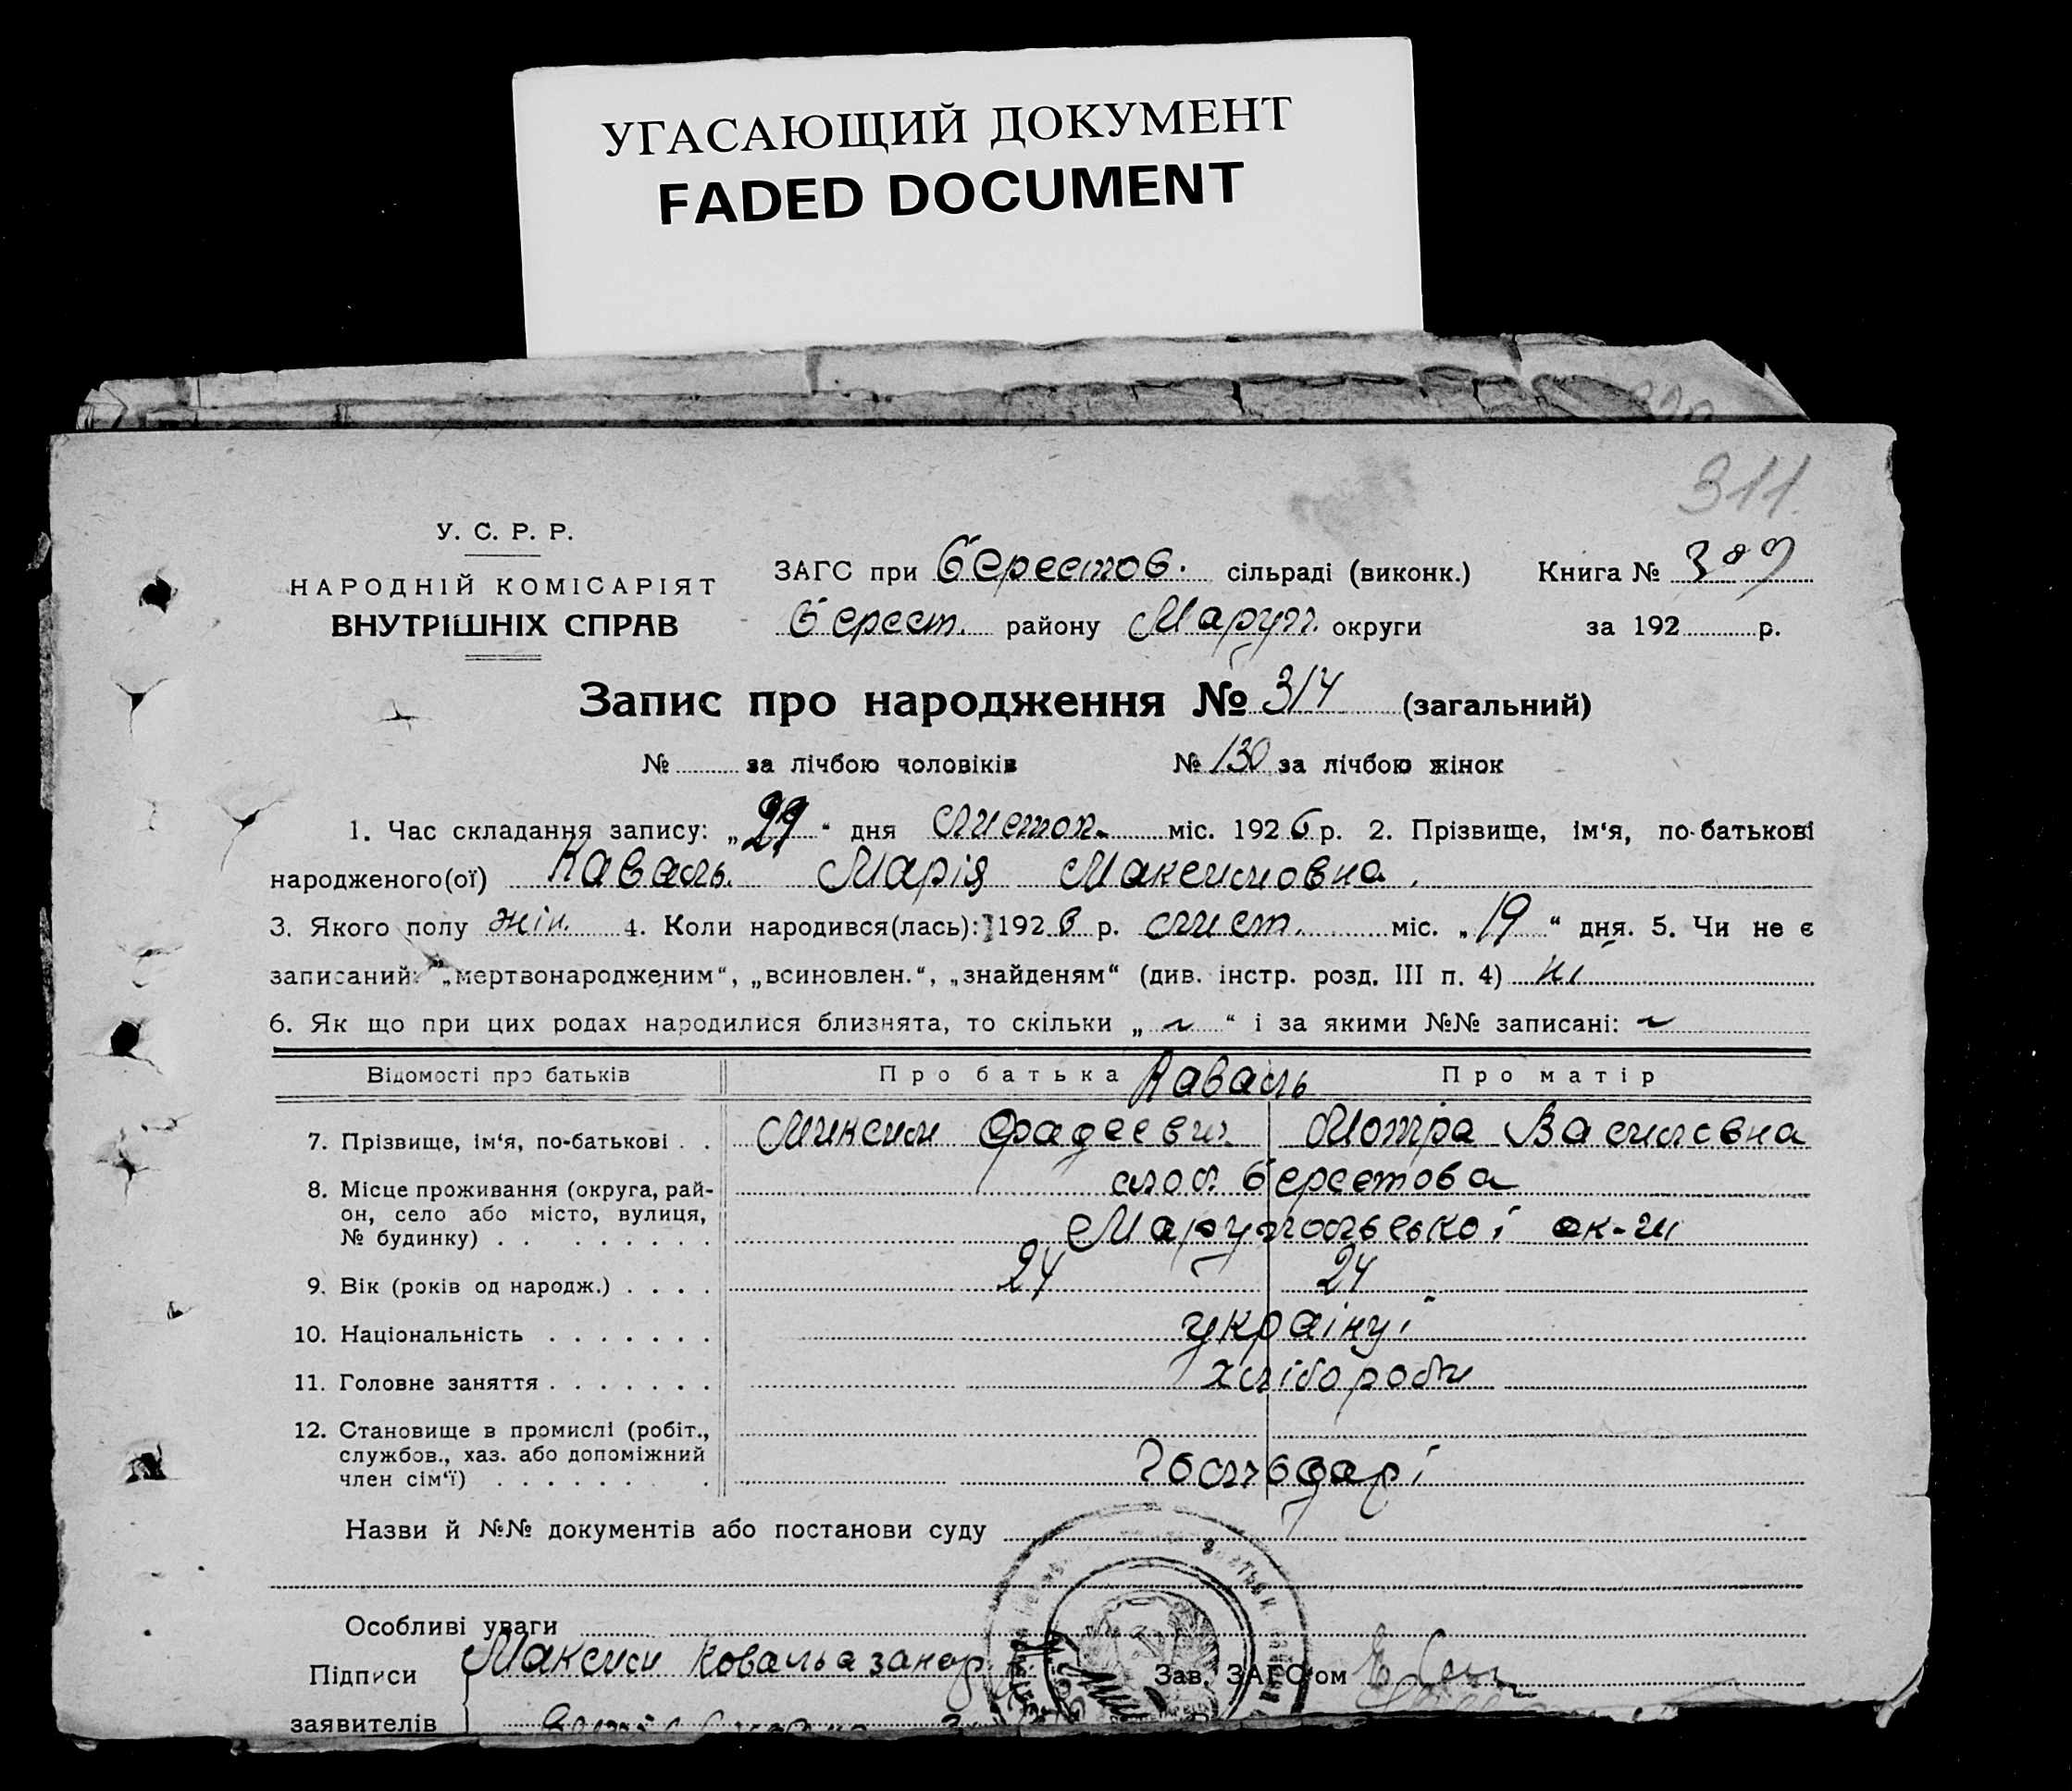 УГАСАЮЩИЙ ДОКУМЕНТ
FADED DOCUMENT
311.
У. С. Р. Р.
НАРОДНІЙ КОМІСАРІЯТ
ВНУТРІШНІХ СПРАВ
ЗАГС при Берестов. сільраді (виконк.) Книга №
Берест. району Маруп. округи за 192 р.
Запис про народження № 314 (загальний)
№ за лічбою чоловіків № 130 за лічбою жінок
1. Час складання запису: „29“ дня листоп. міс. 1926 р. 2. Прізвище, ім‘я, по-батькові
народженого(ої) Коваль Марія Максимовна.
3. Якого полу жін. 4. Коли народився(лась): 1926 р. лист. міс. „19“ дня. 5. Чи не є
записаний: „мертвонародженим“, „всиновлен.“, „знайденям“ (див. інстр. розд. III п. 4) ні
6. Як що при цих родах народилися близнята, то скільки „ ~ “ і за якими №№ записані: ~
Відомості про батьків Про батька Коваль Про матір
7. Прізвище, ім‘я, по-батькові . . Максим Фадеевич Мотря Василевна
8. Місце проживання (округа, рай-
он, село або місто, вулиця,
№ будинку) . . . . . . . .
слоб. Берестова
Марупольської ок-ги
9. Вік (років од народж.) . . . . 24 24
10. Національність . . . . . . . українці
11. Головне заняття . . . . . . . хлібороби
12. Становище в промислі (робіт.,
службов., хаз. або допоміжний
член сім‘ї) . . . . . . . .
Господарі
Назви й №№ документів або постанови суду
Особливі уваги
Підписи Максим Коваль а за
Зав. ЗАГС‘ом
заявителів